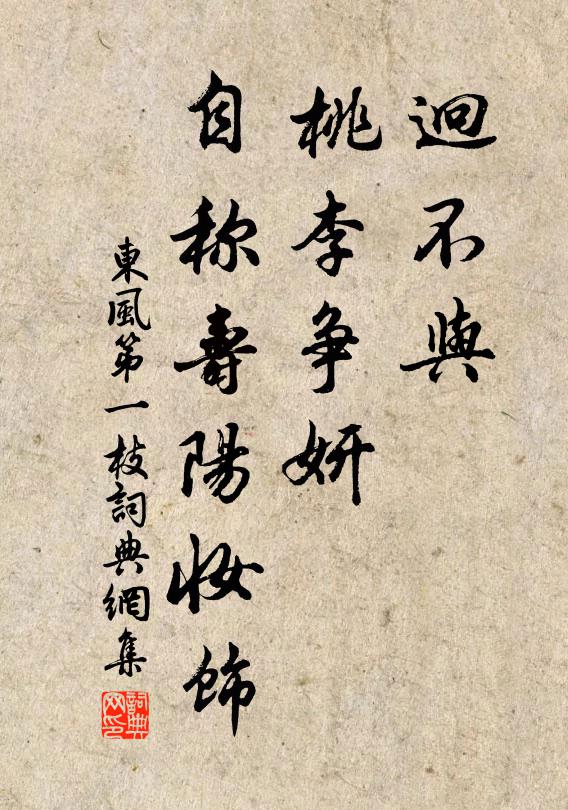 迥不與
桃李争妍
自称壽陽妆飾
東風第一枝詞典網集
詞典
网印